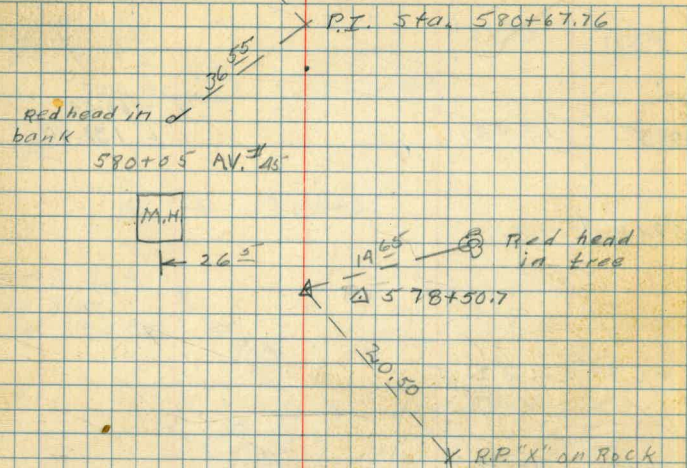 P.I. Sta. 580+67.76
36 55
Red head in
bank
580+05 AV. #45
M.H
26 5
14 65
Red head
in tree
Δ 578+50.7
20.50
R.P. "X" on Rock